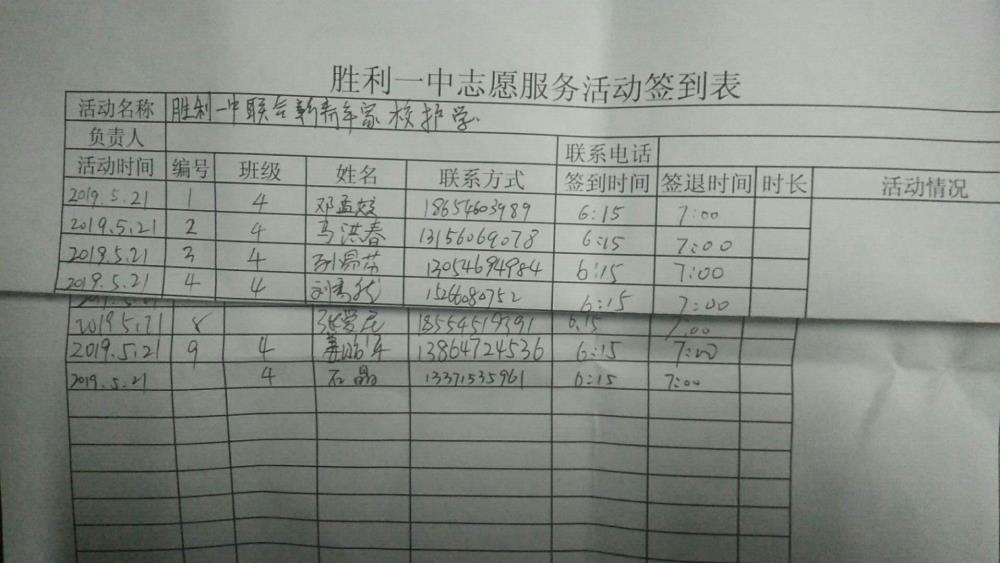 胜利一中志愿服务活动签到表
活动名称 胜利一中联合新青年家校护学
负责人 联系电话
活动时间 编号 班级 姓名 联系方式 签到时间 签退时间 时长 活动情况
2019.5.21 1 4 邓孟姣 18654603989 6:15 7:00
2019.5.21 2 4 马洪春 13156069078 6:15 7:00
2019.5.21 3 4 13054694984 6:15 7:00
2019.5.21 4 4 1526680752 6:15 7:00
2019.5.21 8 张爱民 6:15 7:00
2019.5.21 9 4 13864724536 6:15 7:00
2019.5.21 4 石晶 13371535961 6:15 7:00